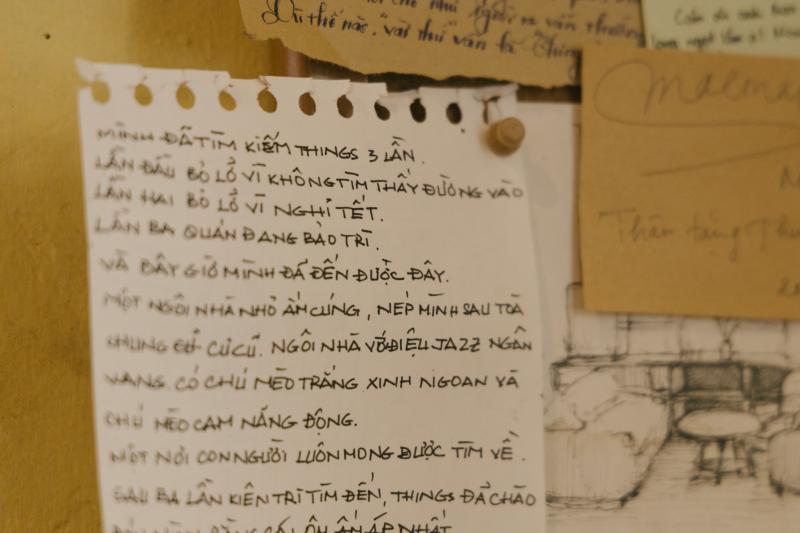 Dù thế nào, vài thứ vẫn là Things
MÌNH ĐÃ TÌM KIẾM THINGS 3 LẦN.
LẦN ĐẦU BỎ LỠ VÌ KHÔNG TÌM THẤY ĐƯỜNG VÀO
LẦN HAI BỎ LỠ VÌ NGHỈ TẾT.
LẦN BA QUÁN ĐANG BẢO TRÌ.
VÀ BÂY GIỜ MÌNH ĐÃ ĐẾN ĐƯỢC ĐÂY.
MỘT NGÔI NHÀ NHỎ ẤM CÚNG, NÉP MÌNH SAU TOÀ
CHUNG CƯ CŨ CŨ. NGÔI NHÀ VỚI ĐIỆU JAZZ NGÂN
VANG. CÓ CHÚ MÈO TRẮNG XINH NGOAN VÀ
CHÚ MÈO CAM NĂNG ĐỘNG.
MỘT NƠI CON NGƯỜI LUÔN MONG ĐƯỢC TÌM VỀ.
SAU BA LẦN KIÊN TRÌ TÌM ĐẾN, THINGS ĐÃ CHÀO
ẤM ÁP NHẤT
Thân tặng